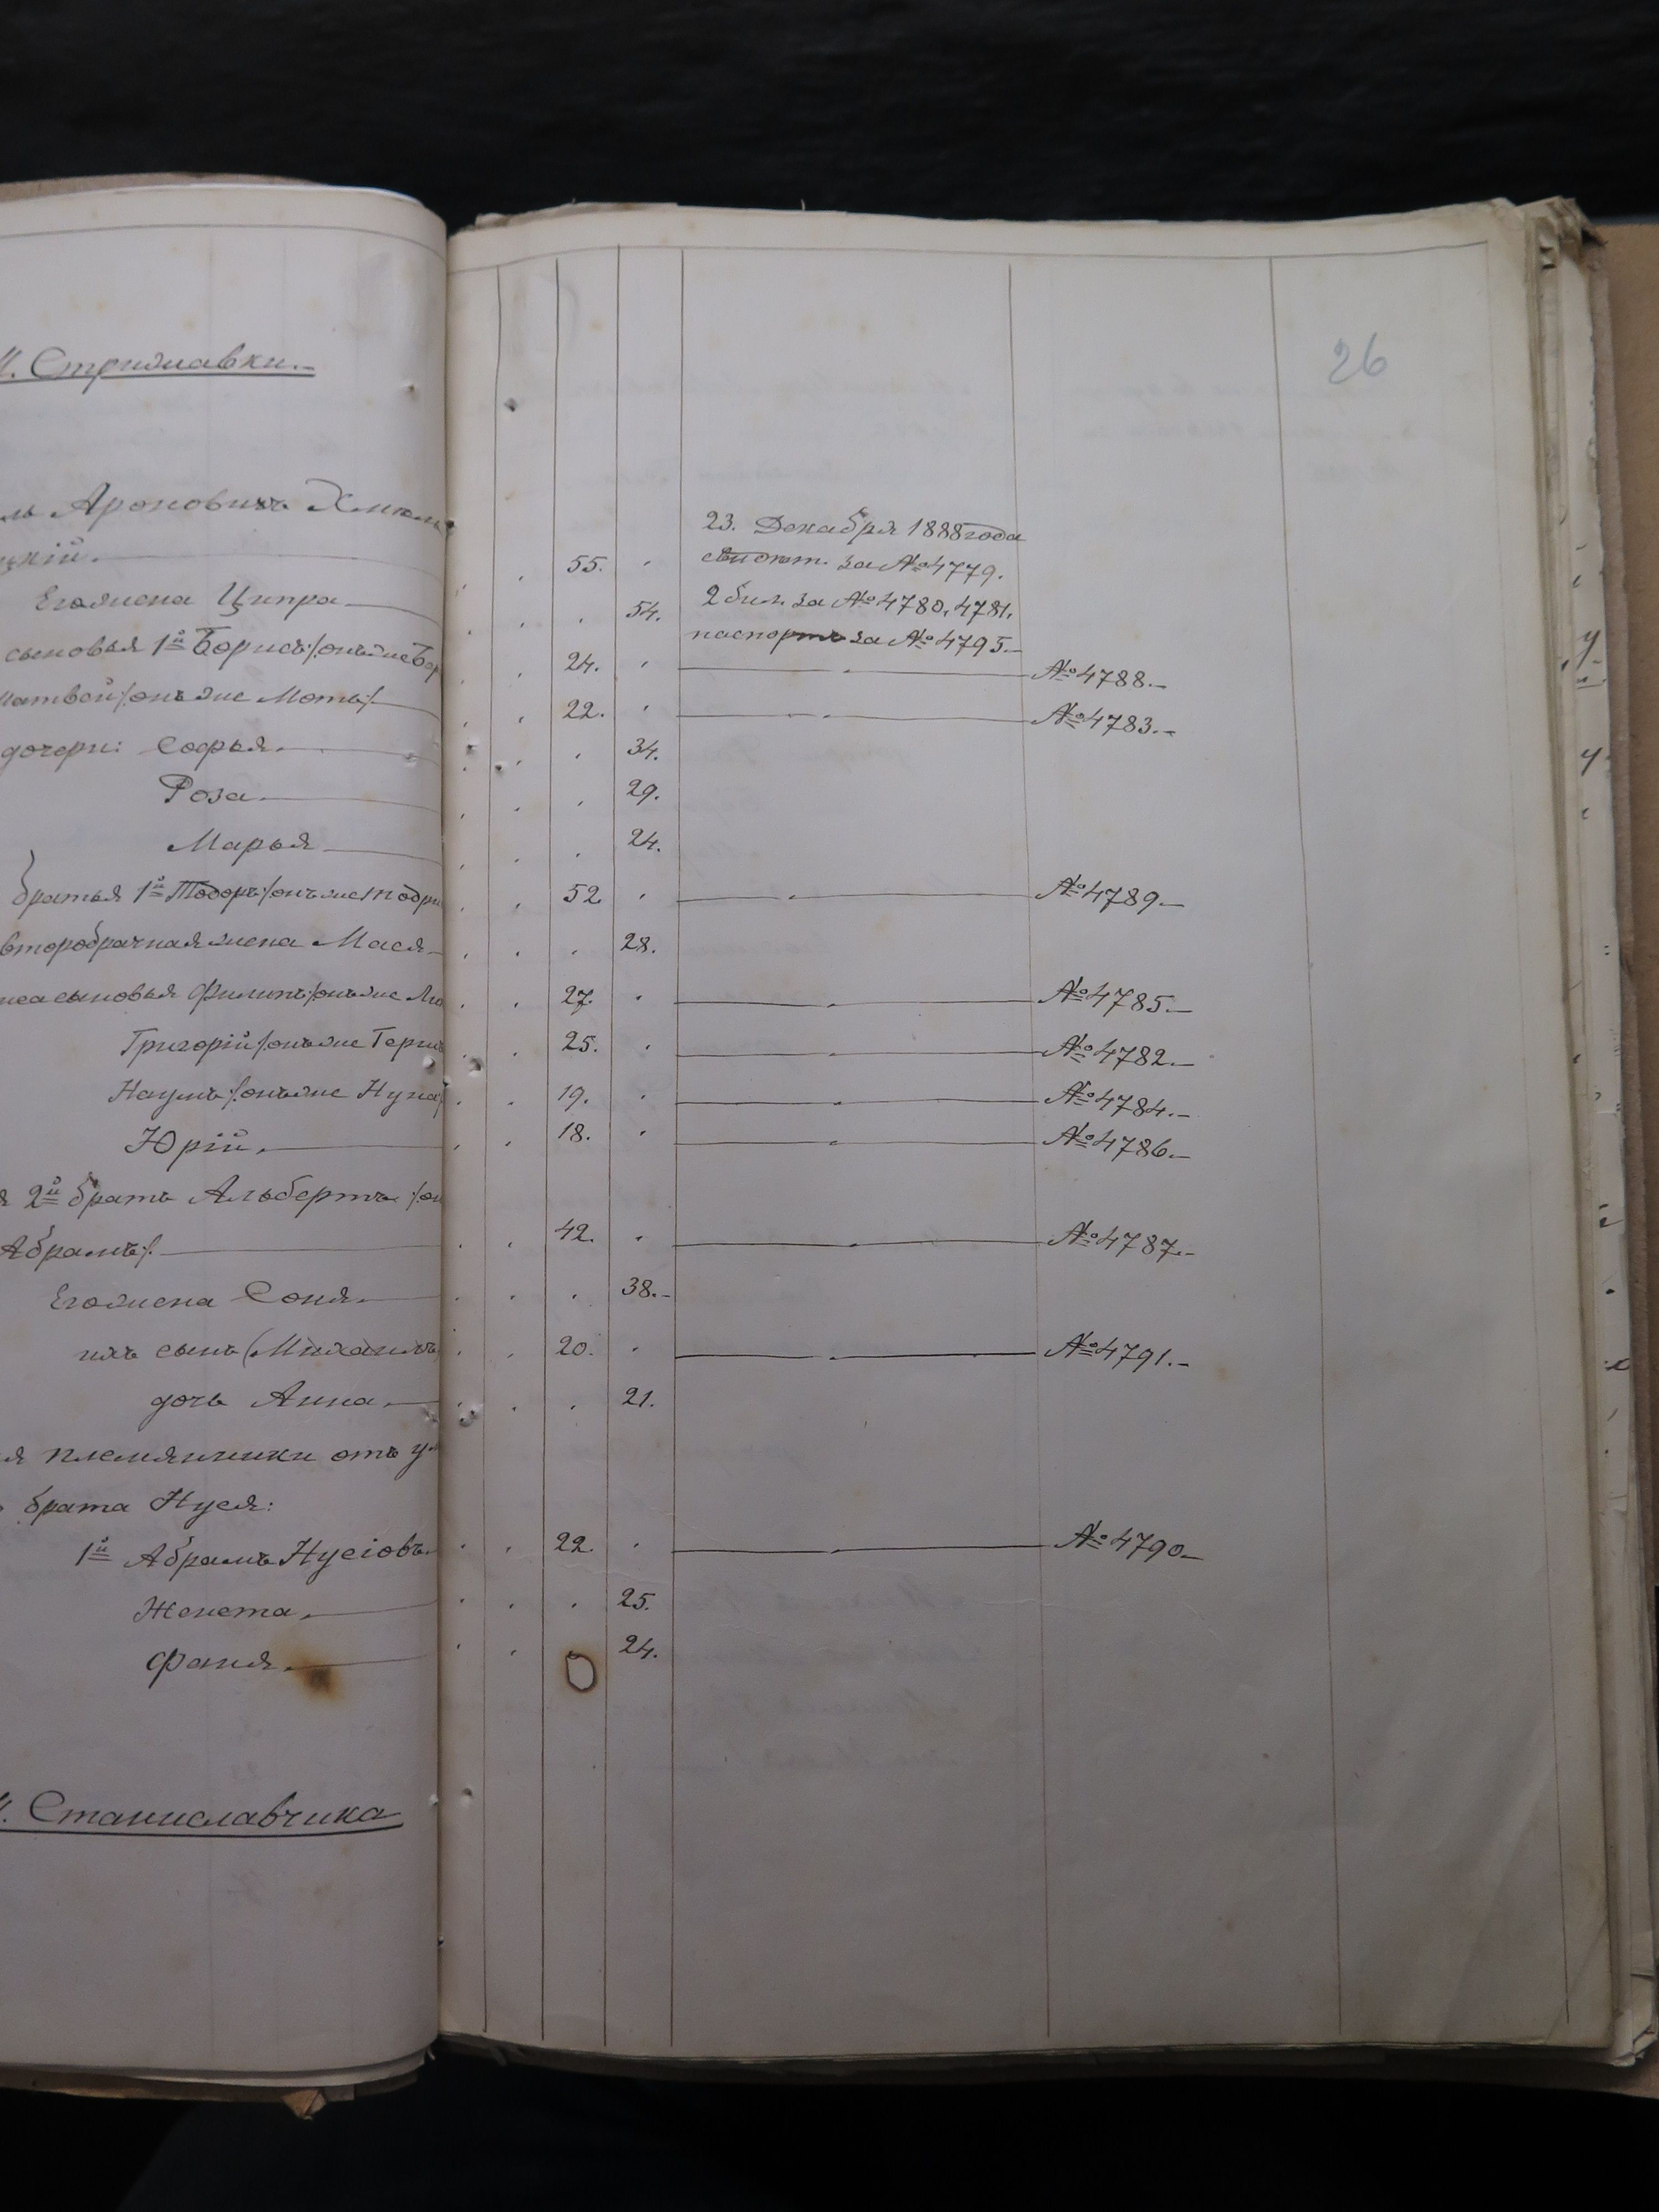 26
М. Стрижавки.-
ль Ароновичъ Хмель
цкій.
55.
23. Декабря 1888 года
свидѣт. за № 4779.
Его жена Ципра 54.
2 бил. за № 4780, 4781.
паспортъ за № 4795.-
сыновья 1й Борисъ /:онъ же Бор 24. № 4788.-
Матвей /:онъ же Моть:/ 22. № 4783.-
дочери: Софья. 34.
Роза. 29.
Марья 24.
братья 1й Тодоръ /:онъ же Тодри 52. № 4789.-
второбрачная жена Мася 28.
сыновья Филипъ /:онъ же 27. № 4785.-
Григорій /:онъ же Герш 25. № 4782.-
Наумъ /:онъ же Нуха 19. № 4784.-
Юрій. 18. № 4786.-
я 2й братъ Альбертъ /:он
Абрамъ:/. 42. № 4787.-
Его жена Соня. 38.-
ихъ сынъ (Михаилъ) 20. № 4791.-
дочь Анна. 21.
я племянники отъ у
брата Нуся:
1й Абрамъ Нусіовъ. 22. № 4790-
Женета. 25.
Фаня. 24.
М. Станиславчика